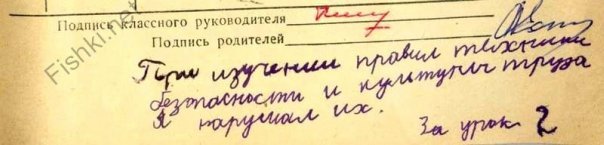 Подпись классного руководителя
Подпись родителей
При изучении правил техники
безопасности и культуры труда
Я нарушал их.
За урок 2
Fishki.net